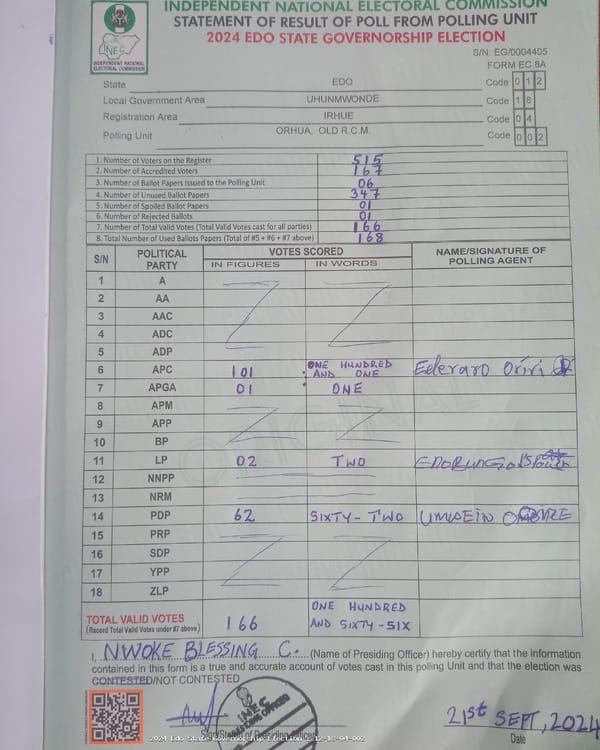 INDEPENDENT NATIONAL ELECTORAL COMMISSION
STATEMENT OF RESULT OF POLL FROM POLLING UNIT
2024 EDO STATE GOVERNORSHIP ELECTION
INEC
INDEPENDENT NATIONAL
ELECTORAL COMMISSION
S/N: EG/0004405
FORM EC 8A
State EDO Code 0 1 2
Local Government Area UHUNMWONDE Code 1 8
Registration Area IRHUE Code 0 4
Polling Unit ORHUA, OLD R.C.M. Code 0 0 2
1. Number of Voters on the Register 515
2. Number of Accredited Voters 167
3. Number of Ballot Papers Issued to the Polling Unit 06
4. Number of Unused Ballot Papers 347
5. Number of Spoiled Ballot Papers 01
6. Number of Rejected Ballots 01
7. Number of Total Valid Votes (Total Valid Votes cast for all parties) 166
8. Total Number of Used Ballots Papers (Total of #5 + #6 + #7 above) 168
S/N POLITICAL PARTY VOTES SCORED NAME/SIGNATURE OF POLLING AGENT
IN FIGURES IN WORDS
1 A
2 AA
3 AAC
4 ADC
5 ADP
6 APC 101 ONE HUNDRED AND ONE Ederaro
7 APGA 01 ONE
8 APM
9 APP
10 BP
11 LP 02 TWO
12 NNPP
13 NRM
14 PDP 62 SIXTY-TWO
15 PRP
16 SDP
17 YPP
18 ZLP
TOTAL VALID VOTES 166 ONE HUNDRED
(Record Total Valid Votes under #7 above) AND SIXTY-SIX
I, NWOKE BLESSING C. (Name of Presiding Officer) hereby certify that the information
contained in this form is a true and accurate account of votes cast in this polling Unit and that the election was
CONTESTED/NOT CONTESTED
INEC
21st SEPT, 2024
Date